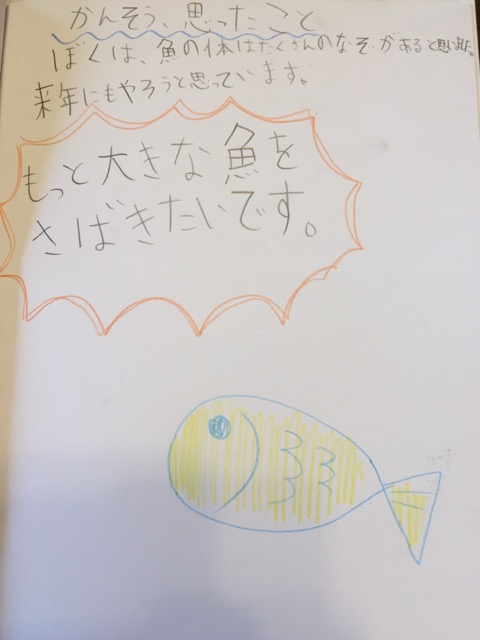 かんそう、思ったこと
ぼくは、魚の体はたくさんのなぞがあると思いました。
来年にもやろうと思っています。
もっと大きな魚を
さばきたいです。